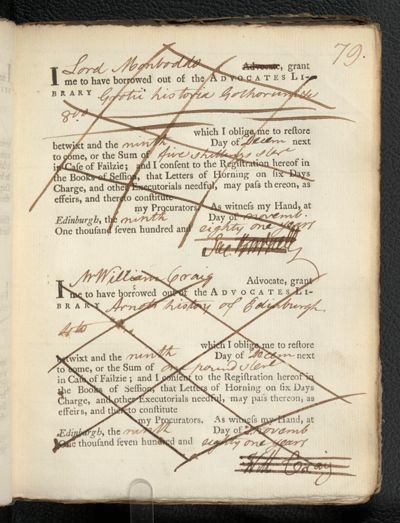 79.
I Lord Monboddo Advocate, grant
me to have borrowed out of the ADVOCATES LI-
BRARY Grotii historia Gothorum &c
8vo
which I oblige me to restore
betwixt and the ninth Day of Decem next
to come, or the Sum of five shillings sterl
in Case of Failzie; and I consent to the Registration hereof in
the Books of Session, that Letters of Horning on six Days
Charge, and other Executorials needful, may pass thereon, as
effeirs, and thereto constitute
my Procurators. As witness my Hand, at
Edinburgh, the ninth Day of novemb.
One thousand seven hundred and eighty one years
I Mr William Craig Advocate, grant
me to have borrowed out of the ADVOCATES LI-
BRARY Arnots history of Edinburgh
4to
which I oblige me to restore
betwixt and the ninth Day of Decem next
to come, or the Sum of one pound sterl
in Case of Failzie; and I consent to the Registration hereof in
the Books of Session, that Letters of Horning on six Days
Charge, and other Executorials needful, may pass thereon, as
effeirs, and thereto constitute
my Procurators. As witness my Hand, at
Edinburgh, the ninth Day of Novemb
One thousand seven hundred and eighty one years
Will Craig